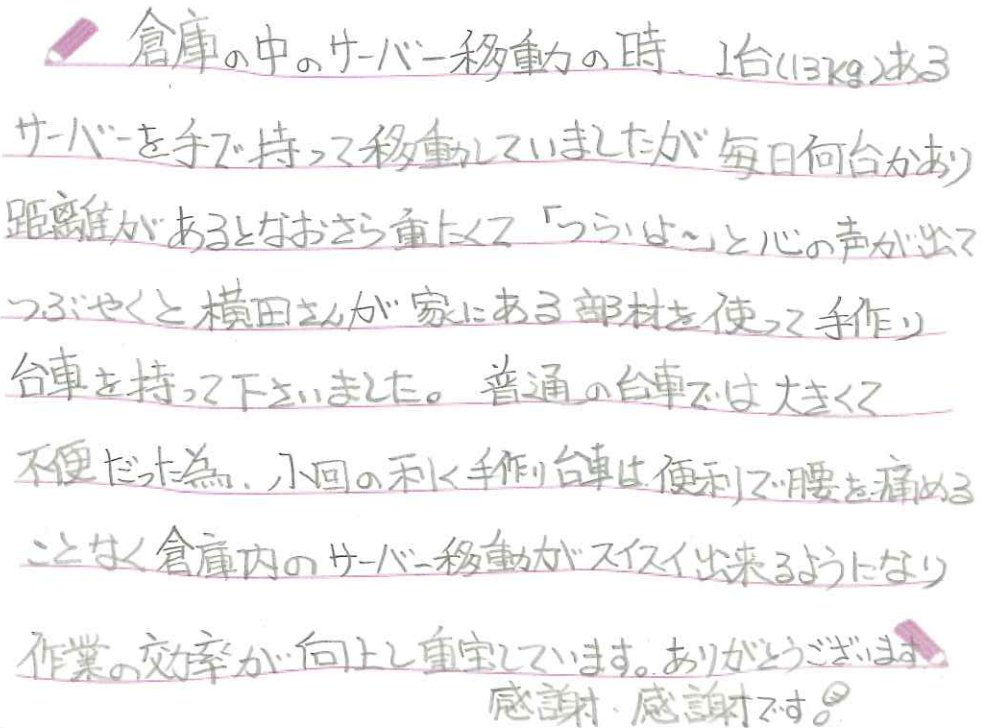 倉庫の中のサーバー移動の時、1台(13kg)ある
サーバーを手で持って移動していましたが毎日何台かあり
距離があるとなおさら重たくて「つらいよ～」と心の声が出て
つぶやくと横田さんが家にある部材を使って手作り
台車を持って下さいました。普通の台車では大きくて
不便だった為、小回の利く手作り台車は便利で腰を痛める
ことなく倉庫内のサーバー移動がスイスイ出来るようになり
作業の効率が向上し重宝しています。ありがとうございます。
感謝・感謝です